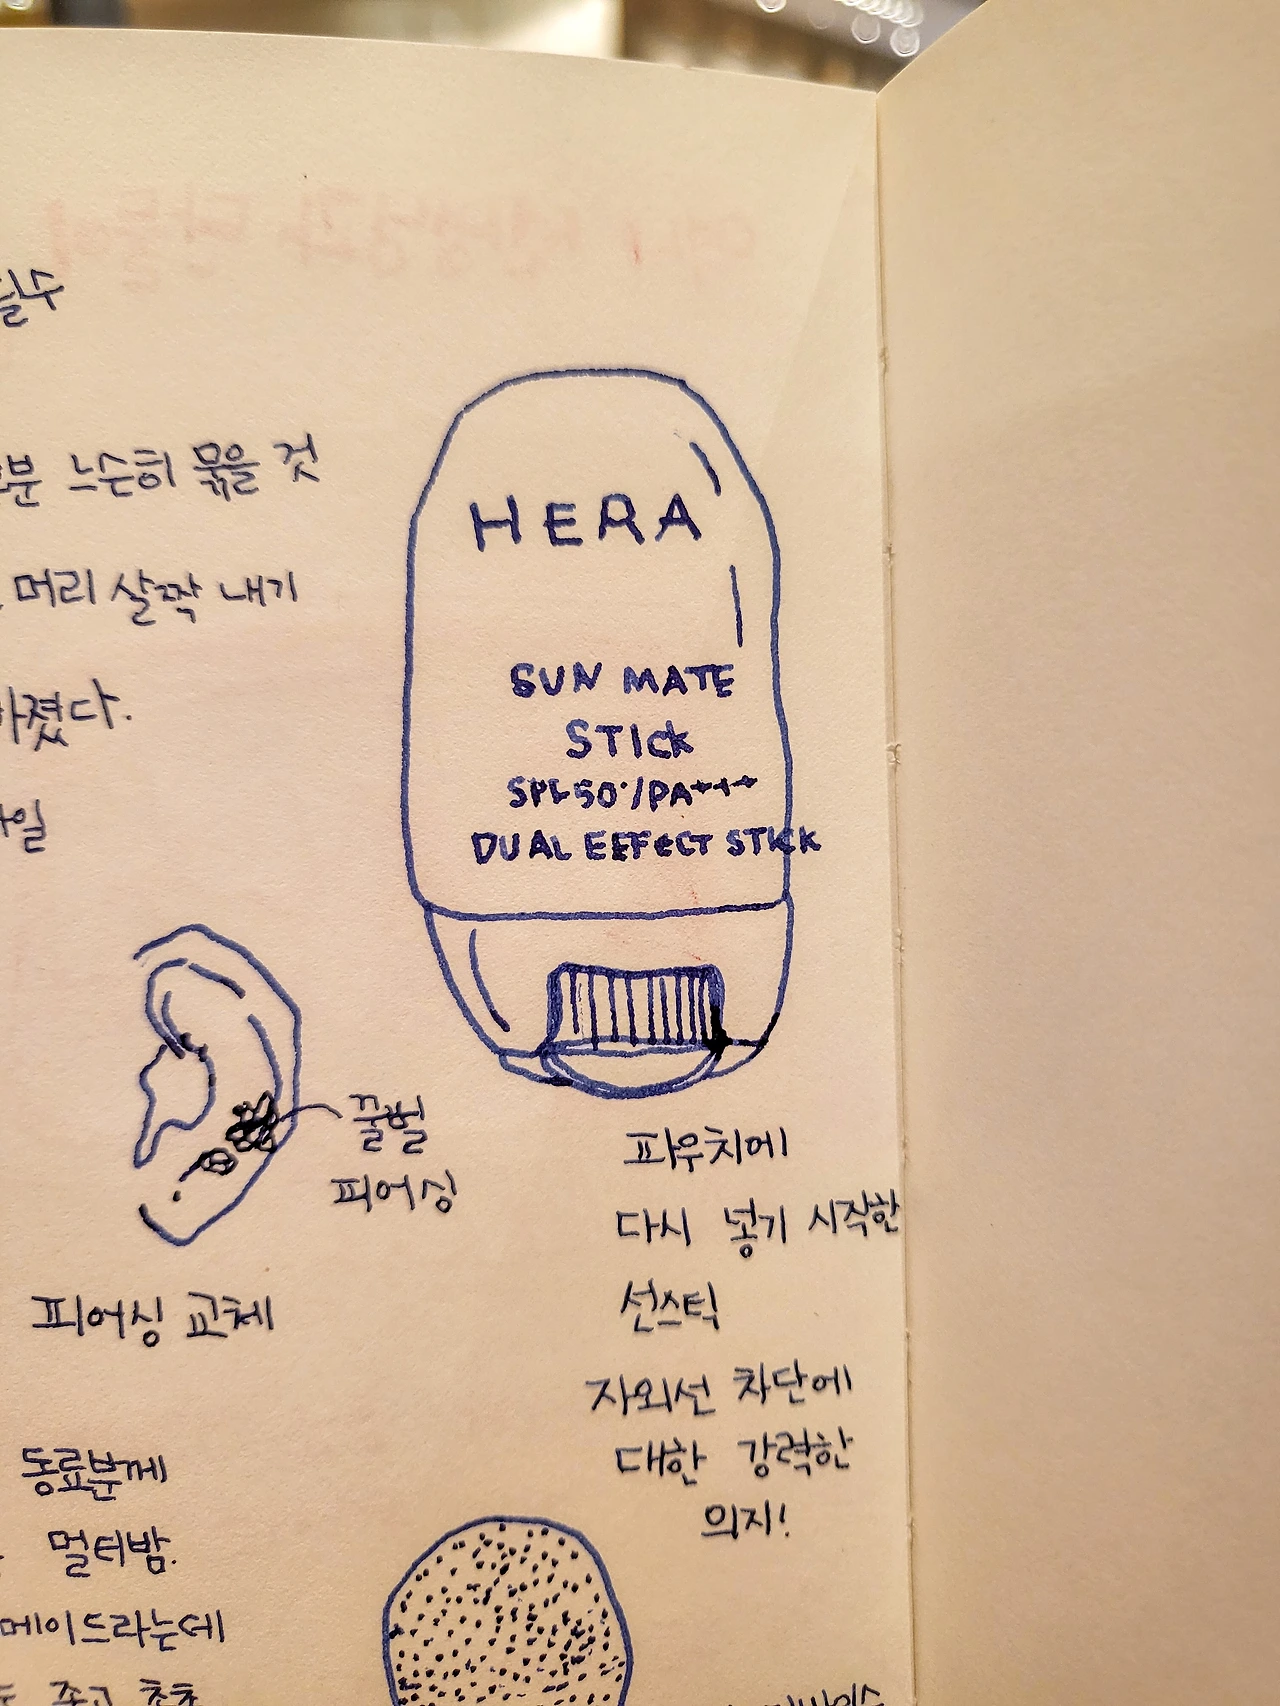 필수
느슨히 묶을 것
머리 살짝 내기
졌다.
HERA
SUN MATE
STICK
SPF50+/PA++++
DUAL EFFECT STICK
꿀벌
피어싱
피어싱 교체
파우치에
다시 넣기 시작한
선스틱
자외선 차단에
대한 강력한
의지!
동료분께
멀티밤.
메이드라는데